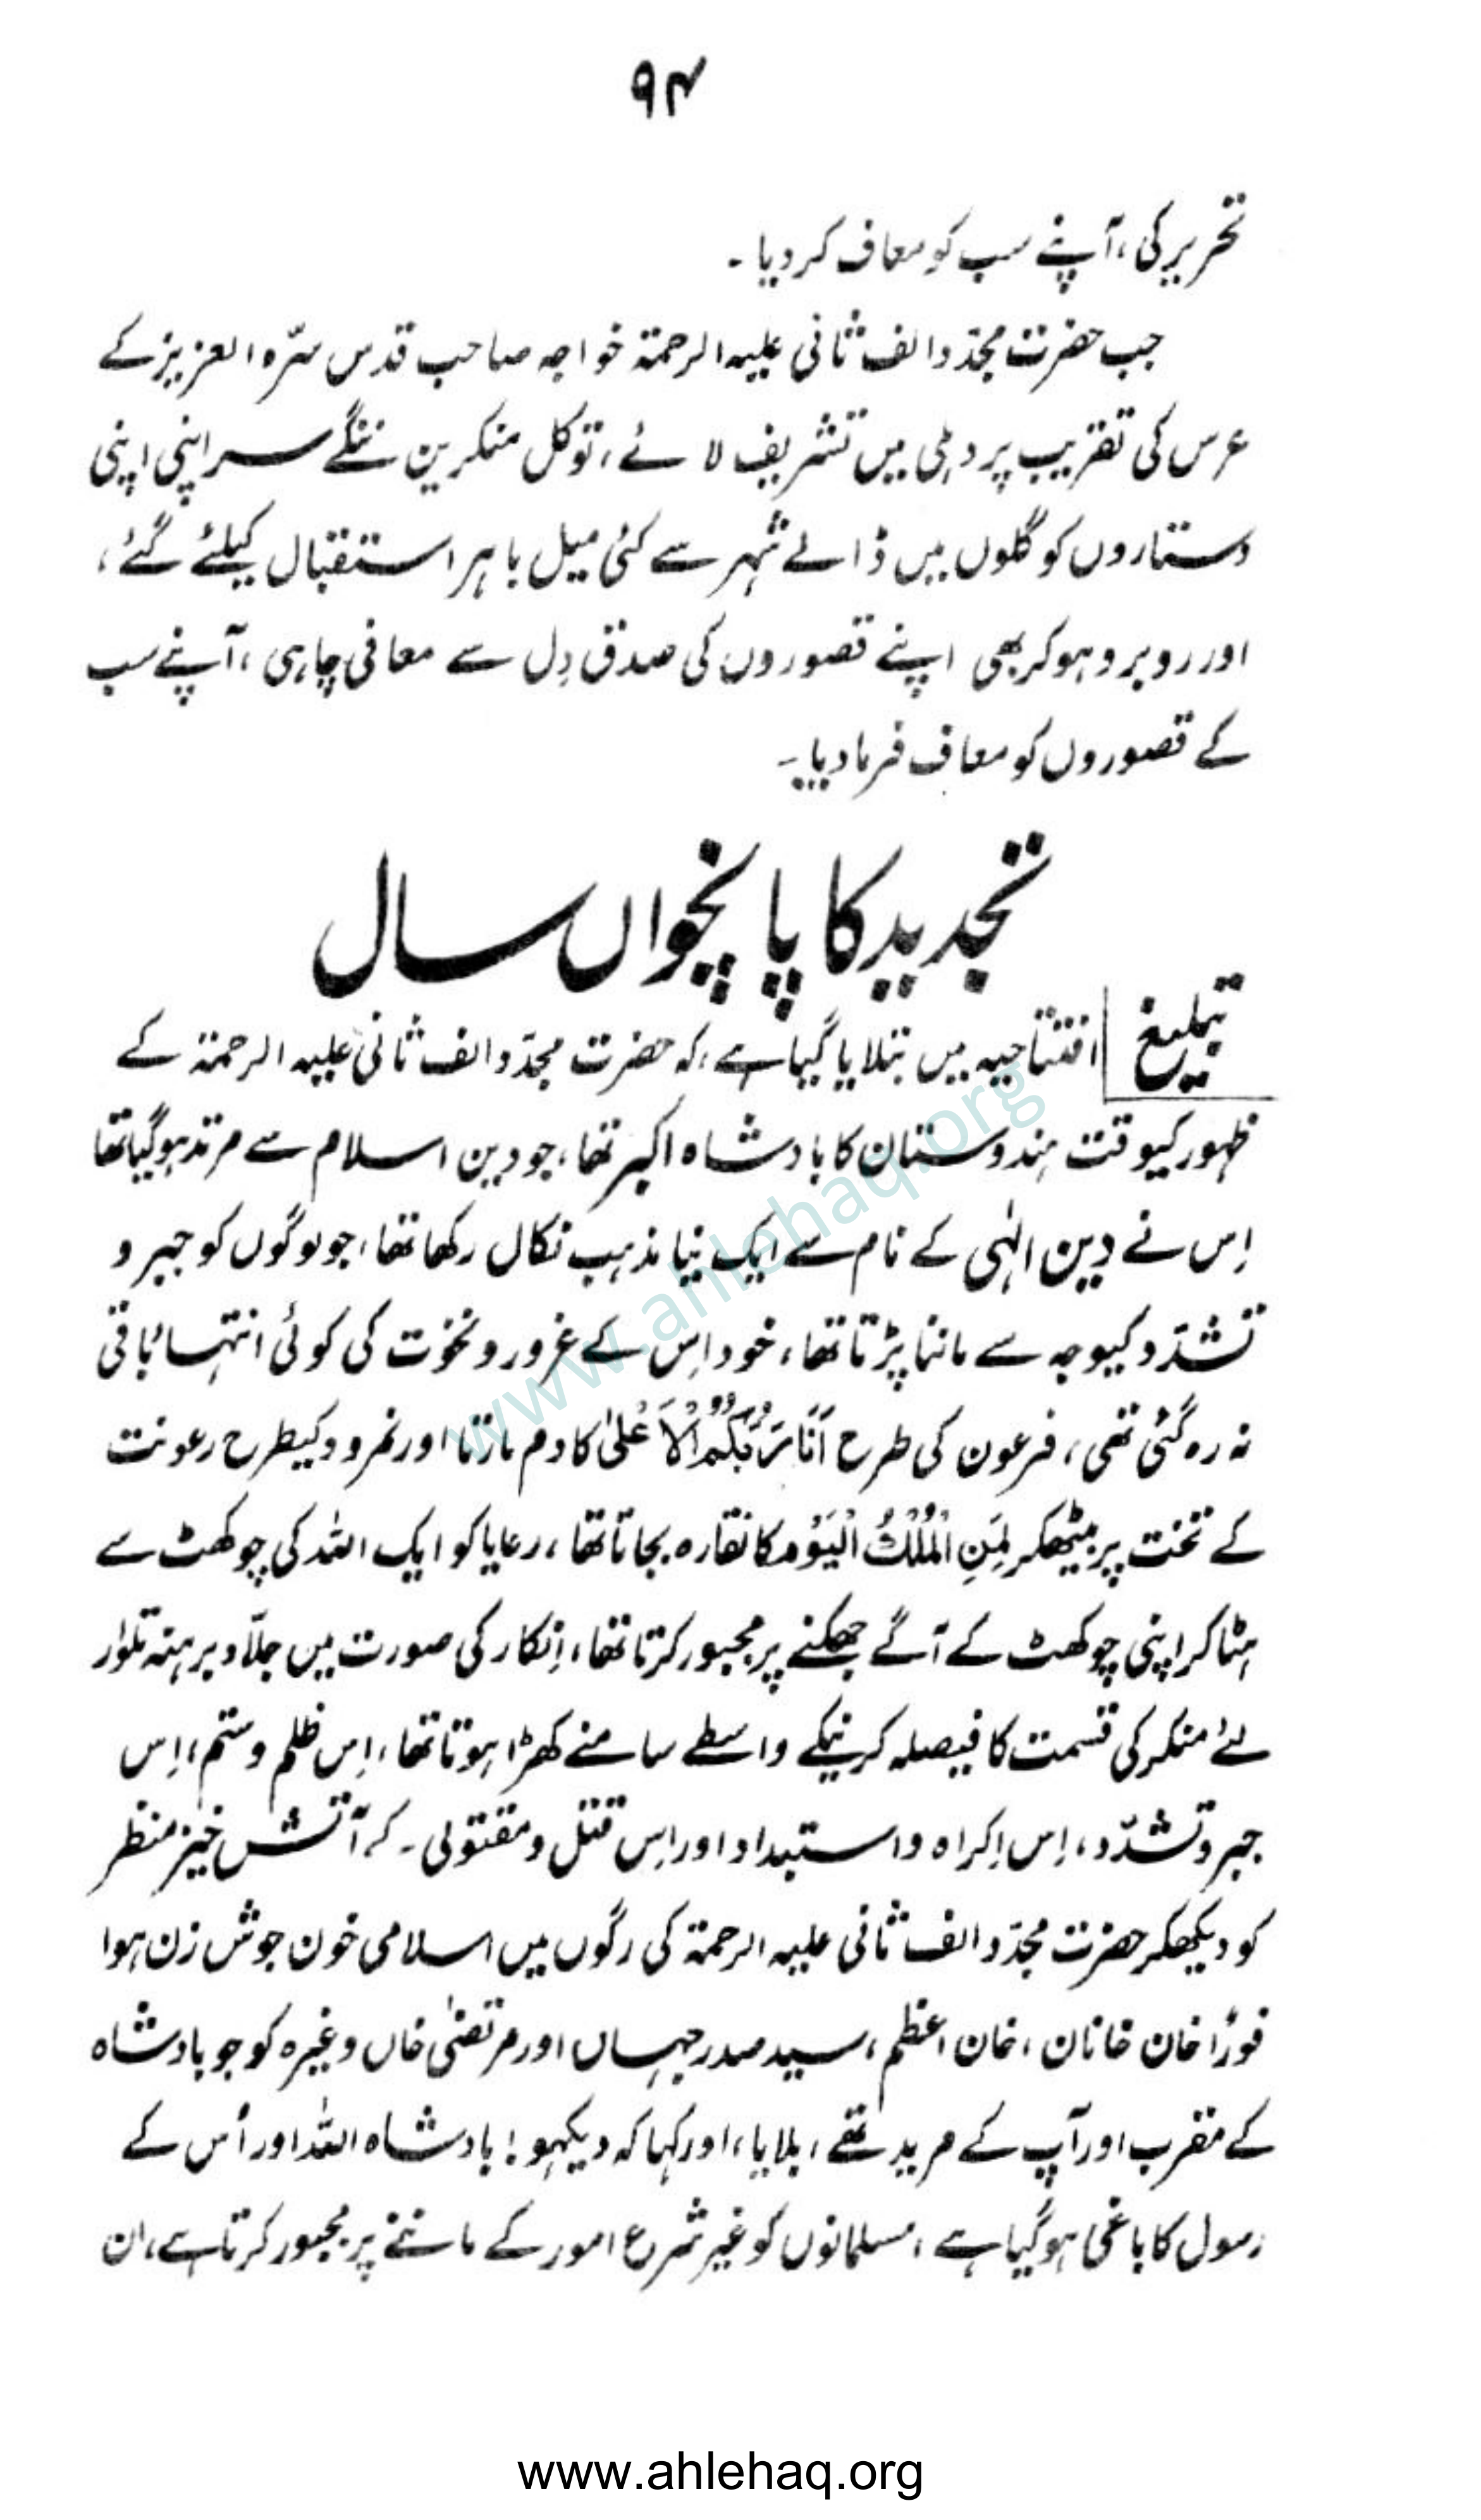 ۹۴
تحریر کی، آپنے سب کو معاف کر دیا۔
جب حضرت مجدّد الف ثانی علیہ الرحمۃ خواجہ صاحب قدس سرّہ العزیز کے
عرس کی تقریب پر دہلی میں تشریف لائے، تو کل منکرین ننگے سر اپنی اپنی
دستاروں کو گلوں میں ڈالے شہر سے کئی میل باہر استقبال کیلئے گئے،
اور روبرو ہو کر بھی اپنے قصوروں کی صدق دِل سے معافی چاہی، آپنے سب
کے قصوروں کو معاف فرما دیا۔
تجدید کا پانچواں سال
تبلیغ افتتاحیہ میں بتلایا گیا ہے، کہ حضرت مجدّد الف ثانی علیہ الرحمۃ کے
ظہور کیوقت ہندوستان کا بادشاہ اکبر تھا، جو دین اسلام سے مرتد ہو گیا تھا
اِس نے دین الٰہی کے نام سے ایک نیا مذہب نکال رکھا تھا، جو لوگوں کو جبر و
تشدّد کیوجہ سے ماننا پڑتا تھا، خود اِس کے غرور و نخوت کی کوئی انتہا باقی
نہ رہ گئی تھی، فرعون کی طرح اَنَا رَبُّكُمُ الْاَعْلٰی کا دم مارتا اور نمرود کیطرح رعونت
کے تخت پر بیٹھکر لِمَنِ الْمُلْكُ الْيَوْمَ کا نقارہ بجاتا تھا، رعایا کو ایک اللہ کی چوکھٹ سے
ہٹا کر اپنی چوکھٹ کے آگے جھکنے پر مجبور کرتا تھا، اِنکار کی صورت میں جلّاد برہنہ تلوار
لئے منکر کی قسمت کا فیصلہ کرنیکے واسطے سامنے کھڑا ہوتا تھا، اِس ظلم و ستم، اِس
جبر و تشدّد، اِس اِکراہ و استبداد اور اِس قتل و مقتولی۔ کے آتش خیز منظر
کو دیکھکر حضرت مجدّد الف ثانی علیہ الرحمۃ کی رگوں میں اسلامی خون جوش زن ہوا
فورًا خان خانان، خان اعظم، سید صدر جہاں اور مرتضیٰ خاں وغیرہ کو جو بادشاہ
کے مقرب اور آپ کے مرید تھے، بلایا، اور کہا کہ دیکھو! بادشاہ اللہ اور اُس کے
رسول کا باغی ہو گیا ہے، مسلمانوں کو غیر شرع امور کے ماننے پر مجبور کرتا ہے، ان
www.ahlehaq.org
www.ahlehaq.org